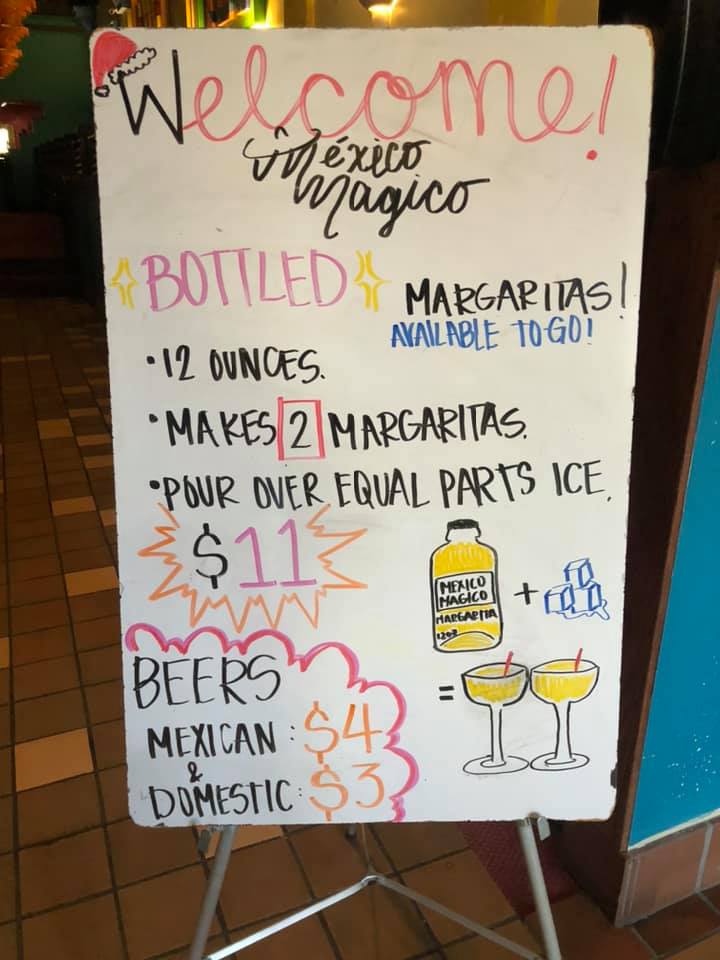 Welcome!
México
Magico
BOTTLED
MARGARITAS!
AVAILABLE TO GO!
•12 OUNCES.
•MAKES 2 MARGARITAS.
•POUR OVER EQUAL PARTS ICE.
$11
MEXICO
MAGICO
MARGARITA
12oz
+
=
BEERS
MEXICAN: $4
&
DOMESTIC: $3